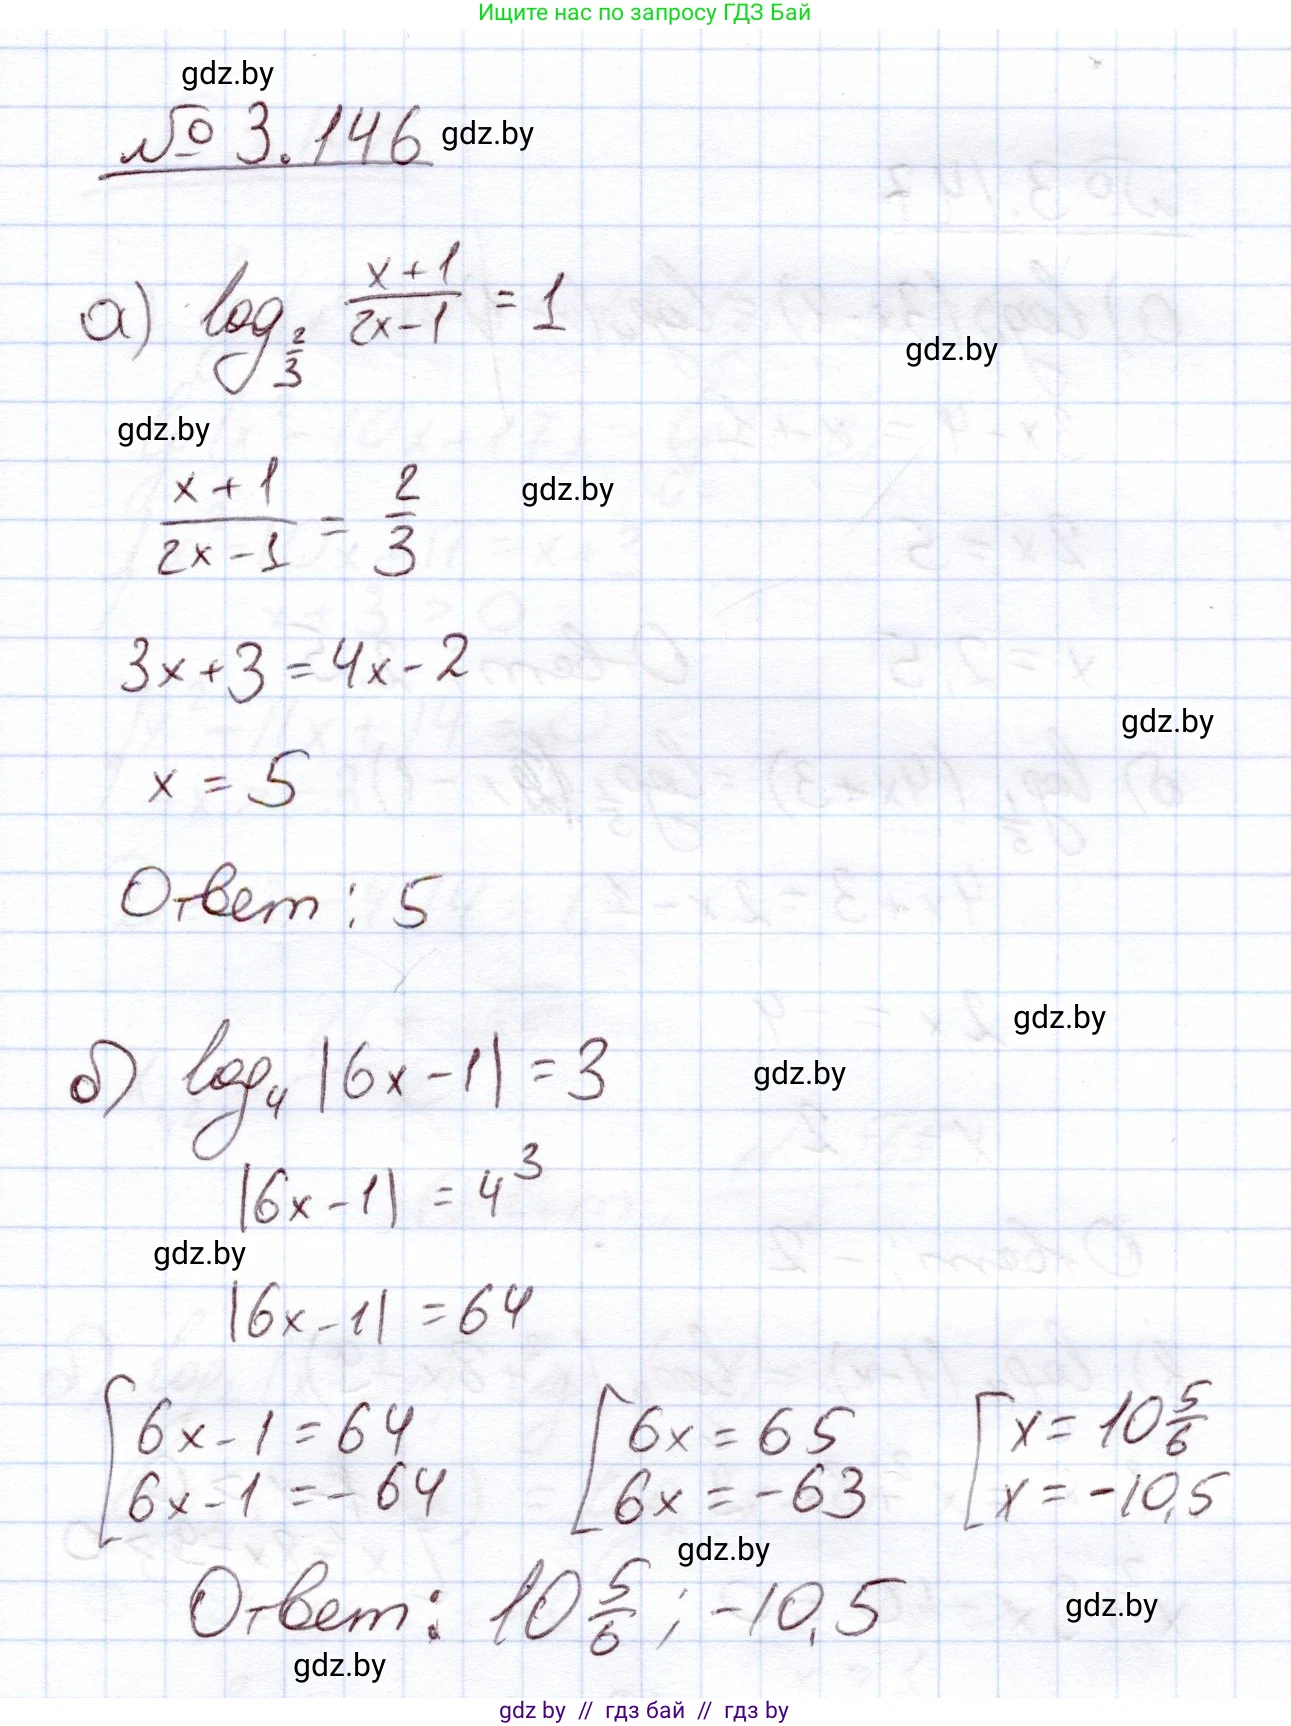 Ищите нас по запросу ГДЗ Бай
gdz.by
№ 3.146 gdz.by
а) log_{2/3} (x+1)/(2x-1) = 1
gdz.by
gdz.by
(x+1)/(2x-1) = 2/3 gdz.by
3x+3=4x-2
gdz.by
x = 5
Ответ: 5
gdz.by
б) log_4 |6x-1| = 3 gdz.by
|6x-1| = 4^3
gdz.by
|6x-1| = 64
[6x-1=64 [6x=65 [x=10 5/6
6x-1=-64 6x=-63 x=-10,5
gdz.by
Ответ: 10 5/6; -10,5 gdz.by
gdz.by
gdz by // гдз бай // гдз by